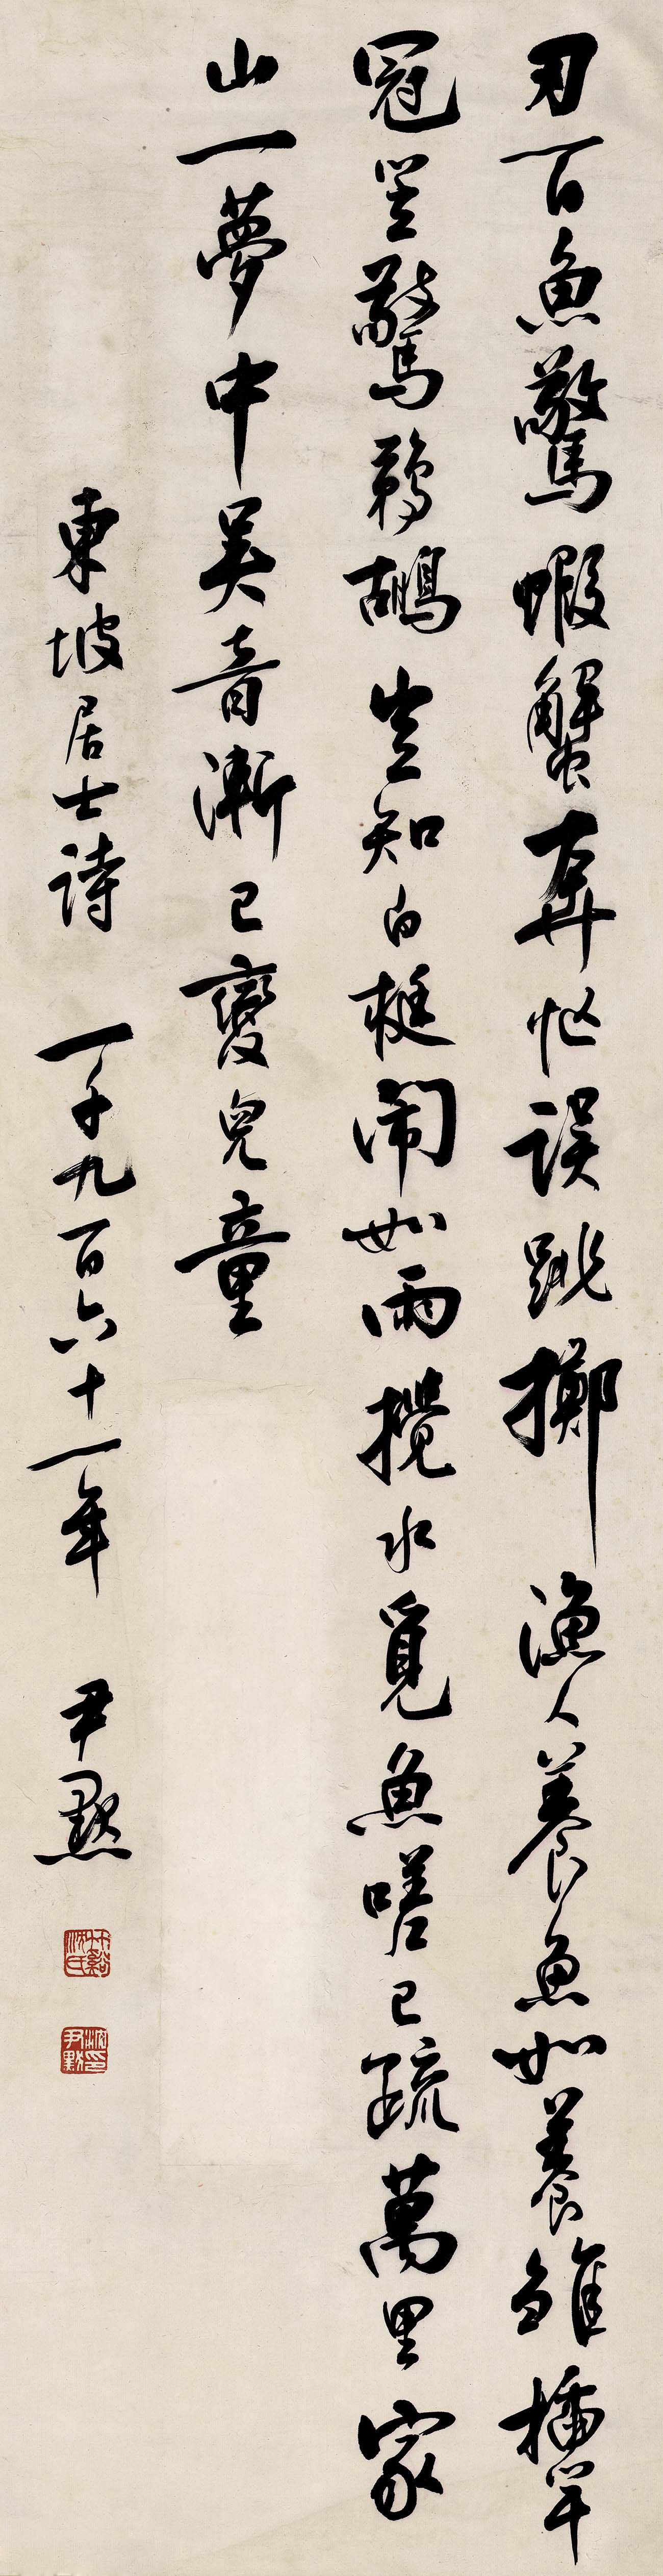 刃百魚驚蝦蟹奔忙誤跳擲漁人養魚如養雛插竿
冠笠驚鵜鶘豈知白梃鬧如雨攪水覓魚嗟已疏萬里家
山一夢中吳音漸已變兒童
東坡居士詩 一千九百六十一年 尹默
竹谿沈氏
沈尹默印